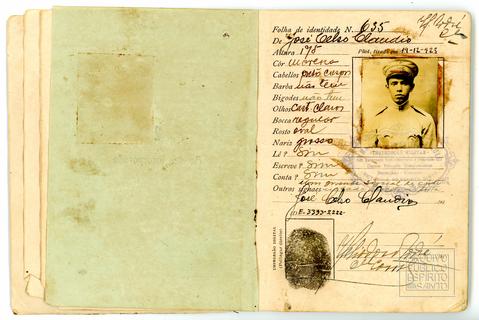 Folha de identidade N. 635
De José Celso Claudio
Altura 175 Phot. tirada em 19-12-925
Côr morena
Cabellos preto carap.
Barba não tem
Bigodes não tem
Olhos Cast. claros
Bocca regular
Rosto oval
Nariz grosso
Lê? Sim
Escreve? Sim
Conta? Sim
Outros signaes
José Celso Claudio
E-3393-2222
IMPRESSÃO DIGITAL
(Pollegar direito)
ARQUIVO
PUBLICO
ESPIRITO
SANTO